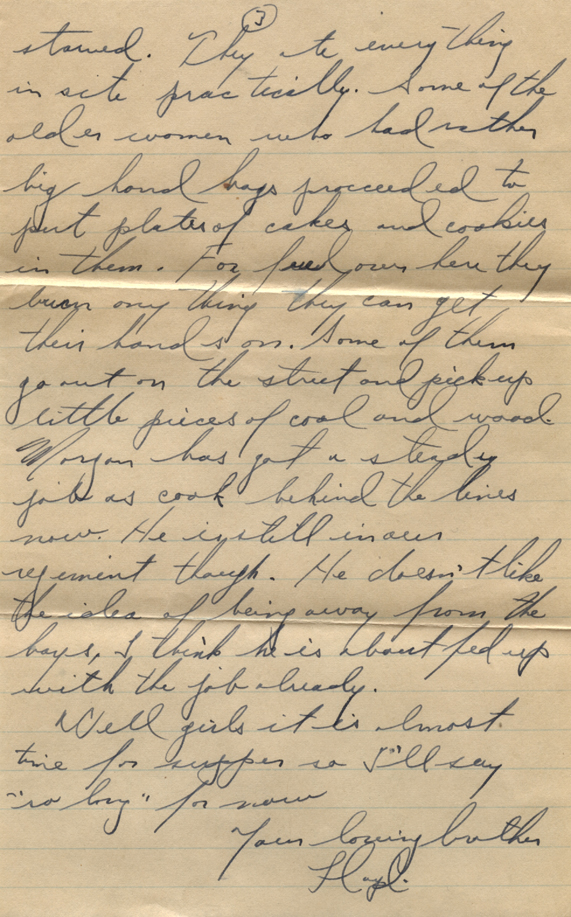 3
starved. They ate everything
in site practically. Some of the
older women who had rather
big hand bags proceeded to
put plates of cakes and cookies
in them. For fuel over here they
burn any thing they can get
their hands on. Some of them
go out on the street and pick up
little pieces of coal and wood.
Morgan has got a steady
job as cook behind the lines
now. He is still in our
regiment though. He doesn't like
the idea of being away from the
boys, I think he is about fed up
with the job already.
Well girls it is almost
time for supper so I'll say
"so long" for now
Your loving brother
Floyd.